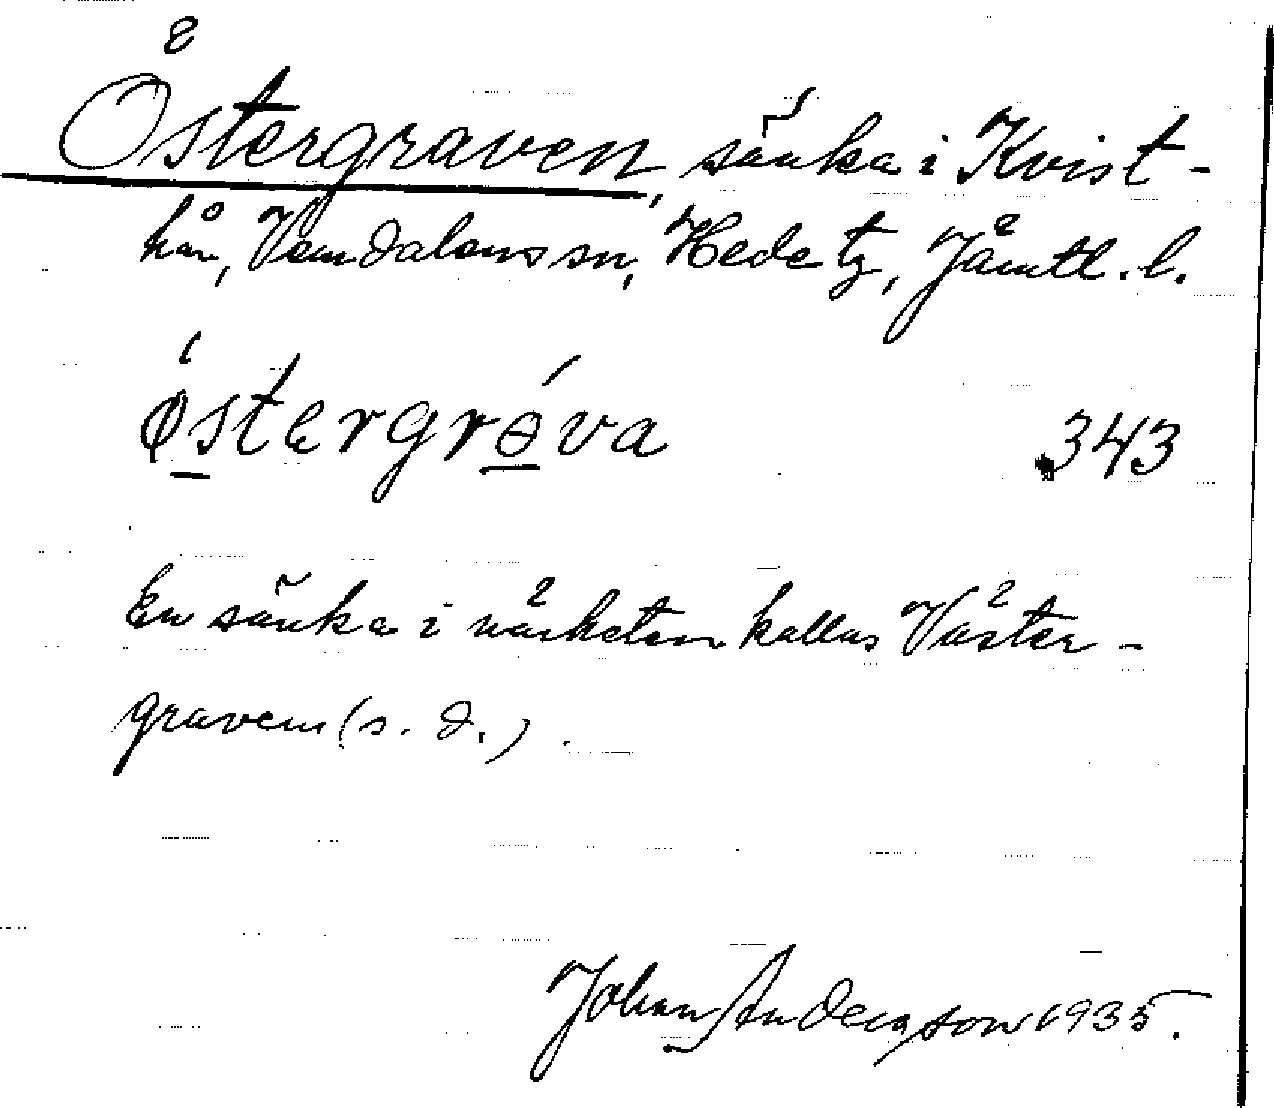 Östergraven, sänka i Kvist-
hån, Vemdalens sn, Hede tg, Jämtl. l.
östergrɵva 343
En sänka i närheten kallas Väster-
graven (s. d.).
Johan Anderson 1935.